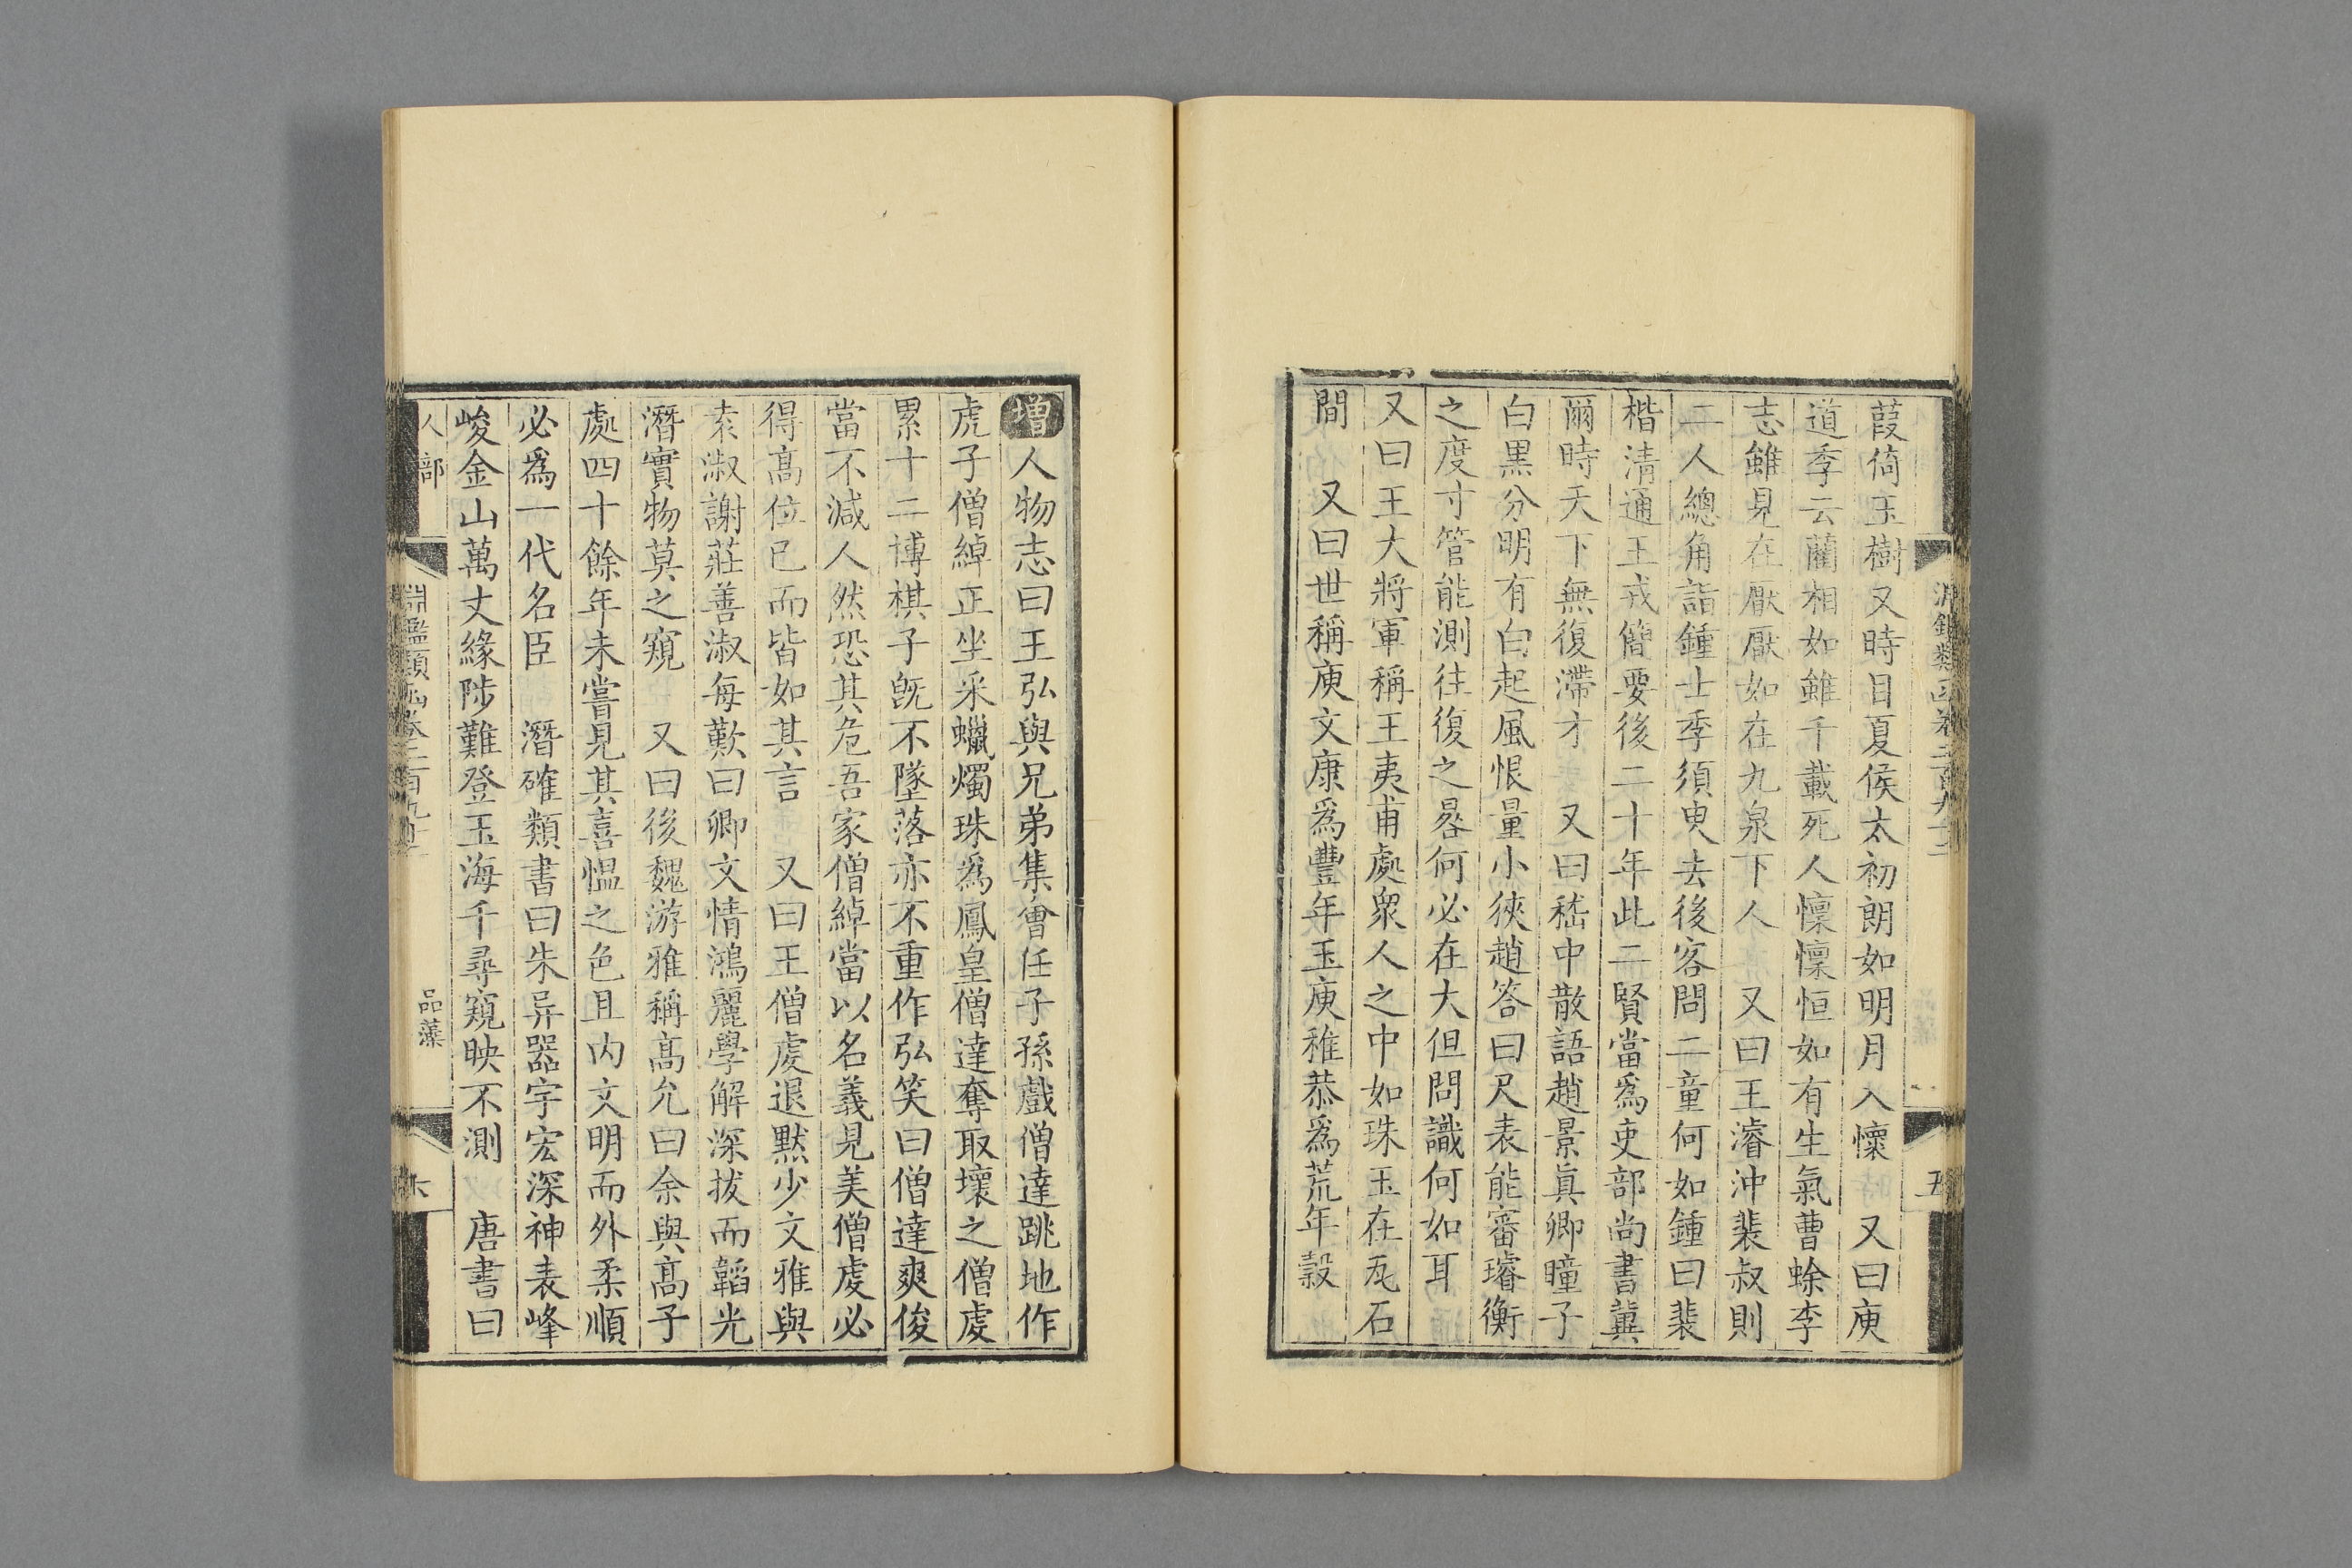 葭倚玉樹又時目夏侯太初朗如明月入懷　又曰庾
道季云藺相如雖千載死人懍懍恒如有生氣曹蜍李
志雖見在厭厭如在九泉下人　又曰王濬沖裴叔則
二人總角詣鍾士季須臾去後客問二童何如鍾曰裴
楷清通王戎簡要後二十年此二賢當爲吏部尚書冀
爾時天下無復滯才　又曰嵇中散語趙景眞卿瞳子
白黒分明有白起風恨量小狹趙答曰尺表能審璿衡
之度寸管能測往復之晷何必在大但問識何如耳
又曰王大將軍稱王夷甫處衆人之中如珠玉在瓦石
間　又曰世稱庾文康爲豐年玉庾稚恭爲荒年穀
五
增人物志曰王弘與兄弟集會任子孫戲僧達跳地作
虎子僧綽正坐采蠟燭珠爲鳳皇僧達奪取壞之僧虔
累十二博棋子旣不墜落亦不重作弘笑曰僧達爽俊
當不減人然恐其危吾家僧綽當以名義見美僧虔必
得高位已而皆如其言　又曰王僧虔退默少文雅與
袁淑謝莊善淑每歎曰卿文情鴻麗學解深拔而韜光
潛實物莫之窺　又曰後魏游雅稱高允曰余與高子
處四十餘年未嘗見其喜慍之色且内文明而外柔順
必爲一代名臣　潛確類書曰朱异器宇宏深神表峰
峻金山萬丈緣陟難登玉海千尋窺映不測　唐書曰
人部
品藻